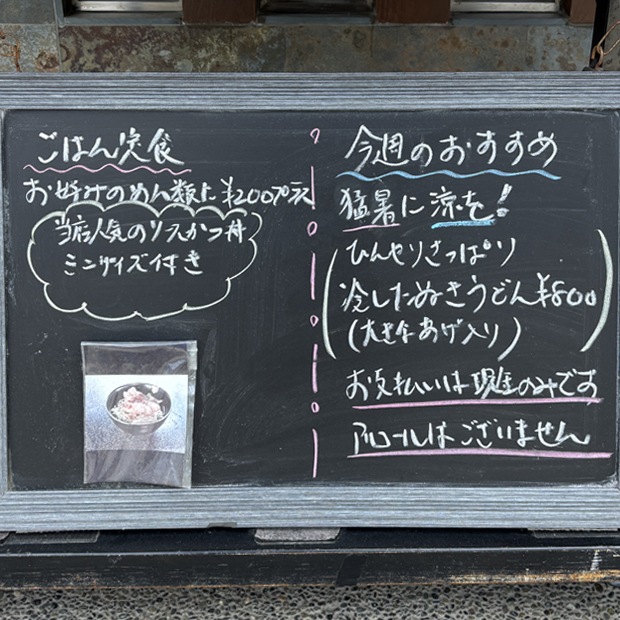 ごはん定食
お好みのめん類に¥200プラス
当店人気のソースかつ丼
ミニサイズ付き
今週のおすすめ
猛暑に涼を!
ひんやりさっぱり
冷したぬきうどん¥800
(大きなあげ入り)
お支払いは現金のみです
アルコールはございません